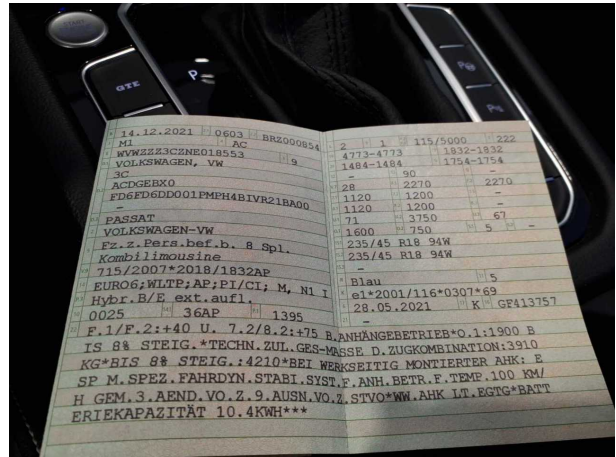 GTE
P
P
P
14.12.2021 0603 BRZ000854
M1 AC
WVWZZZ3CZNE018553 9
VOLKSWAGEN, VW
3C
ACDGEBX0
FD6FD6DD001PMPH4BIVR21BA00
-
PASSAT
VOLKSWAGEN-VW
Fz.z.Pers.bef.b. 8 Spl.
Kombilimousine
715/2007*2018/1832AP
EURO6;WLTP;AP;PI/CI; M, N1 I
Hybr.B/E ext.aufl.
0025 36AP 1395
2 1 115/5000 222
4773-4773 1832-1832
1484-1484 1754-1754
- 90 -
28 2270 2270
1120 1200 -
1120 1200 -
71 3750 67
1600 750 5 -
235/45 R18 94W
235/45 R18 94W
-
Blau 5
e1*2001/116*0307*69
28.05.2021 K GF413757
-
F.1/F.2:+40 U. 7.2/8.2:+75 B.ANHÄNGEBETRIEB*O.1:1900 B
IS 8% STEIG.*TECHN.ZUL.GES-MASSE D.ZUGKOMBINATION:3910
KG*BIS 8% STEIG.:4210*BEI WERKSEITIG MONTIERTER AHK: E
SP M.SPEZ.FAHRDYN.STABI.SYST.F.ANH.BETR.F.TEMP.100 KM/
H GEM.3.AEND.VO.Z.9.AUSN.VO.Z.STVO*WW.AHK LT.EGTG*BATT
ERIEKAPAZITÄT 10.4KWH***